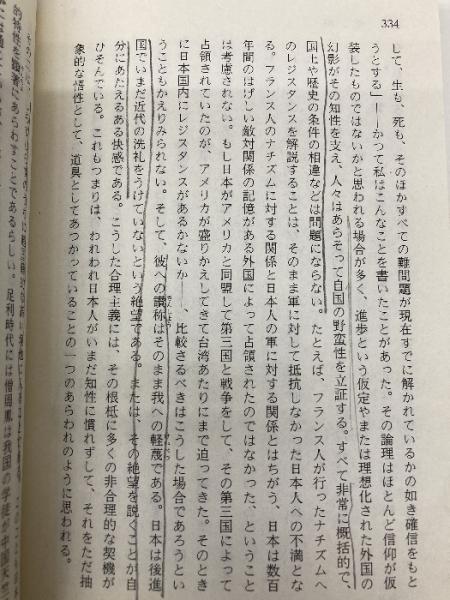 334
して、生も、死も、そのほかすべての難問題が現在すでに解かれているかの如き確信をもと
うとする」――かつて私はこんなことを書いたことがあった。その論理はほとんど信仰が仮
装したものではないかと思われる場合が多く、進歩という仮定やまたは理想化された外国の
幻影がその知性を支え、人々はあらそって自国の野蛮性を立証する。すべて非常に概括的で、
国土や歴史の条件の相違などは問題にならない。たとえば、フランス人が行ったナチズムへ
のレジスタンスを解説することは、そのまま軍に対して抵抗しなかった日本人への不満とな
る。フランス人のナチズムに対する関係と日本人の軍に対する関係とはちがう、日本は数百
年間のはげしい敵対関係の記憶がある外国によって占領されたのではなかった、ということ
は考慮されない。もし日本がアメリカと同盟して第三国と戦争をして、その第三国によって
占領されていたのが、アメリカが盛りかえしてきて台湾あたりにまで迫ってきた。そのとき
に日本国内にレジスタンスがあるかないか――、比較さるべきはこうした場合であろうとい
うこともかえりみられない。そして、彼への讃称はそのまま我への軽蔑である。日本は後進
国でいまだ近代の洗礼をうけていないという絶望である。または、その絶望を説くことが自
分にあたえるある快感である。こうした合理主義には、その根柢に多くの非合理的な契機が
ひそんでいる。これもつまりは、われわれ日本人がいまだ知性に慣れずして、それをただ抽
象的な悟性として、道具としてあつかっていることの一つのあらわれのように思われる。
的特性を顕著にあらわすことであるらしい。足利時代には僧周鳳は我国の学徒が中国